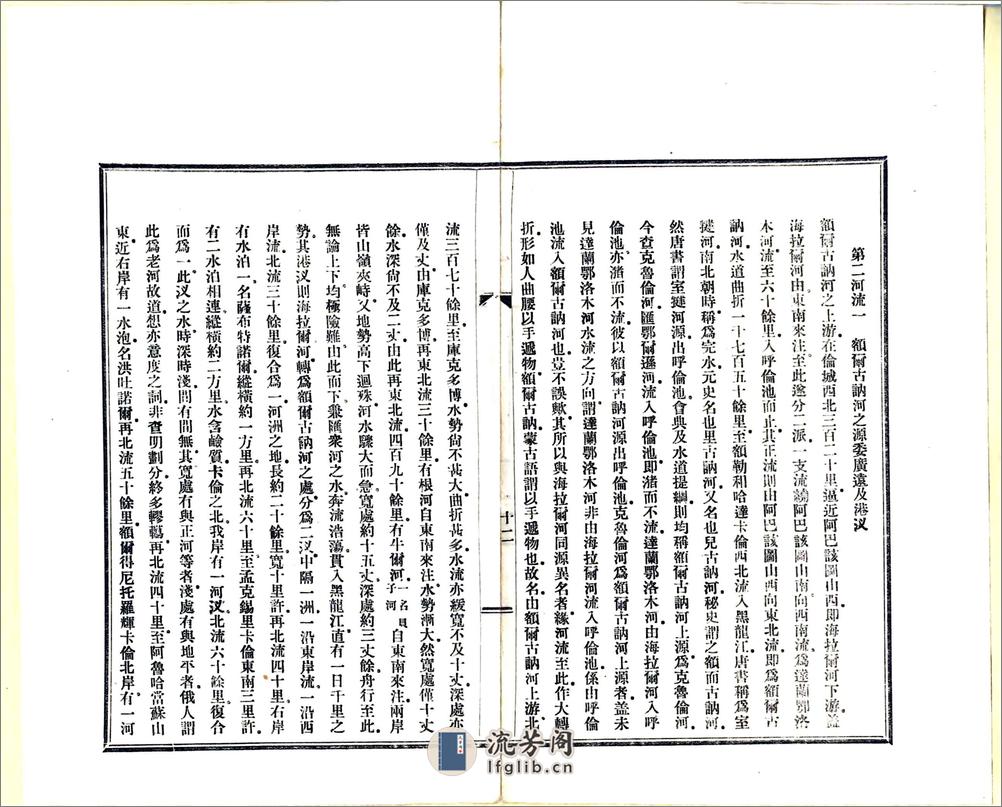 第二河流一　額爾古訥河之源委廣遠及港汊
額爾古訥河之上游在倫城西北三百二十里逼近阿巴該圖山西即海拉爾河下游蓋
海拉爾河由東南來注至此遂分二派一支流繞阿巴該圖山南向西南流爲達蘭鄂洛
木河流至六十餘里入呼倫池而止其正流則由阿巴該圖山西向東北流即爲額爾古
訥河水道曲折一千七百五十餘里至額勒和哈達卡倫西北流入黑龍江唐書稱爲室
㨗河南北朝時稱爲完水元史名也里古訥河又名也兒古訥河秘史謂之額而古訥河
然唐書謂室㨗河源出呼倫池會典及水道提綱則均稱額爾古訥河上源爲克魯倫河
今查克魯倫河匯鄂爾遜河流入呼倫池即瀦而不流達蘭鄂洛木河由海拉爾河入呼
倫池亦瀦而不流彼以額爾古訥河源出呼倫池克魯倫河爲額爾古訥河上源者蓋未
見達蘭鄂洛木河水流之方向謂達蘭鄂洛木河非由海拉爾河流入呼倫池係由呼倫
池流入額爾古訥河也豈不誤歟其所以與海拉爾河同源異名者緣河流至此作大轉
折形如人曲腰以手遞物額爾古訥蒙古語謂以手遞物也故名由額爾古訥河上游北
十二
流三百七十餘里至庫克多博水勢尙不甚大曲折甚多水流亦緩寬不及十丈深處亦
僅及丈由庫克多博再東北流三十餘里有根河自東南來注水勢漸大然寬處僅十丈
餘水深尙不及二丈由此再東北流四百九十餘里有牛爾河一名子河自東南來注兩岸
皆山嶺夾峙又地勢高下迴殊河水驟大而急寬處約十五丈深處約三丈餘舟行至此
無論上下均極險難由此而下兼匯衆河之水奔流浩蕩貫入黑龍江直有一日千里之
勢其港汊則海拉爾河轉爲額爾古訥河之處分爲二汊中隔一洲一沿東岸流一沿西
岸流北流三十餘里復合爲一河洲之地長約二十餘里寬十里許再北流四十里右岸
有水泊一名薩布特諾爾縱橫約一方里再北流六十里至孟克錫里卡倫東南三里許
有二水泊相連縱橫約二方里水含鹼質卡倫之北我岸有一河汊北流六十餘里復合
而爲一此汊之水時深時淺間有間無其寬處有與正河等者淺處有與地平者俄人謂
此爲老河故道想亦意度之詞非查明劃分終多轇轕再北流四十里至阿魯哈當蘇山
東近右岸有一水泡名洪吐諾爾再北流五十餘里額爾得尼托羅輝卡倫北岸有一河
流芳阁
lfglib.cn